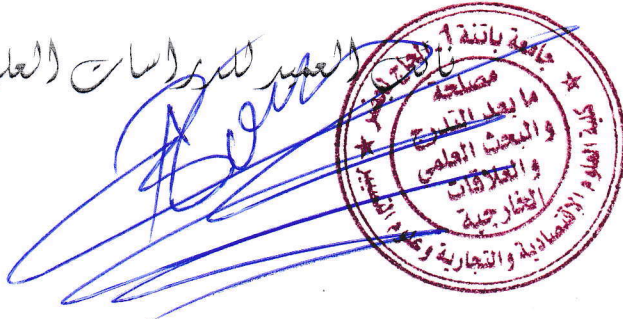 نائب العميد للدراسات العل
جامعة باتنة 1 الحاج لخضر
مصلحة
ما بعد التدرج
والبحث العلمي
والعلاقات
الخارجية
كلية العلوم الاقتصادية والتجارية وعلوم التسيير